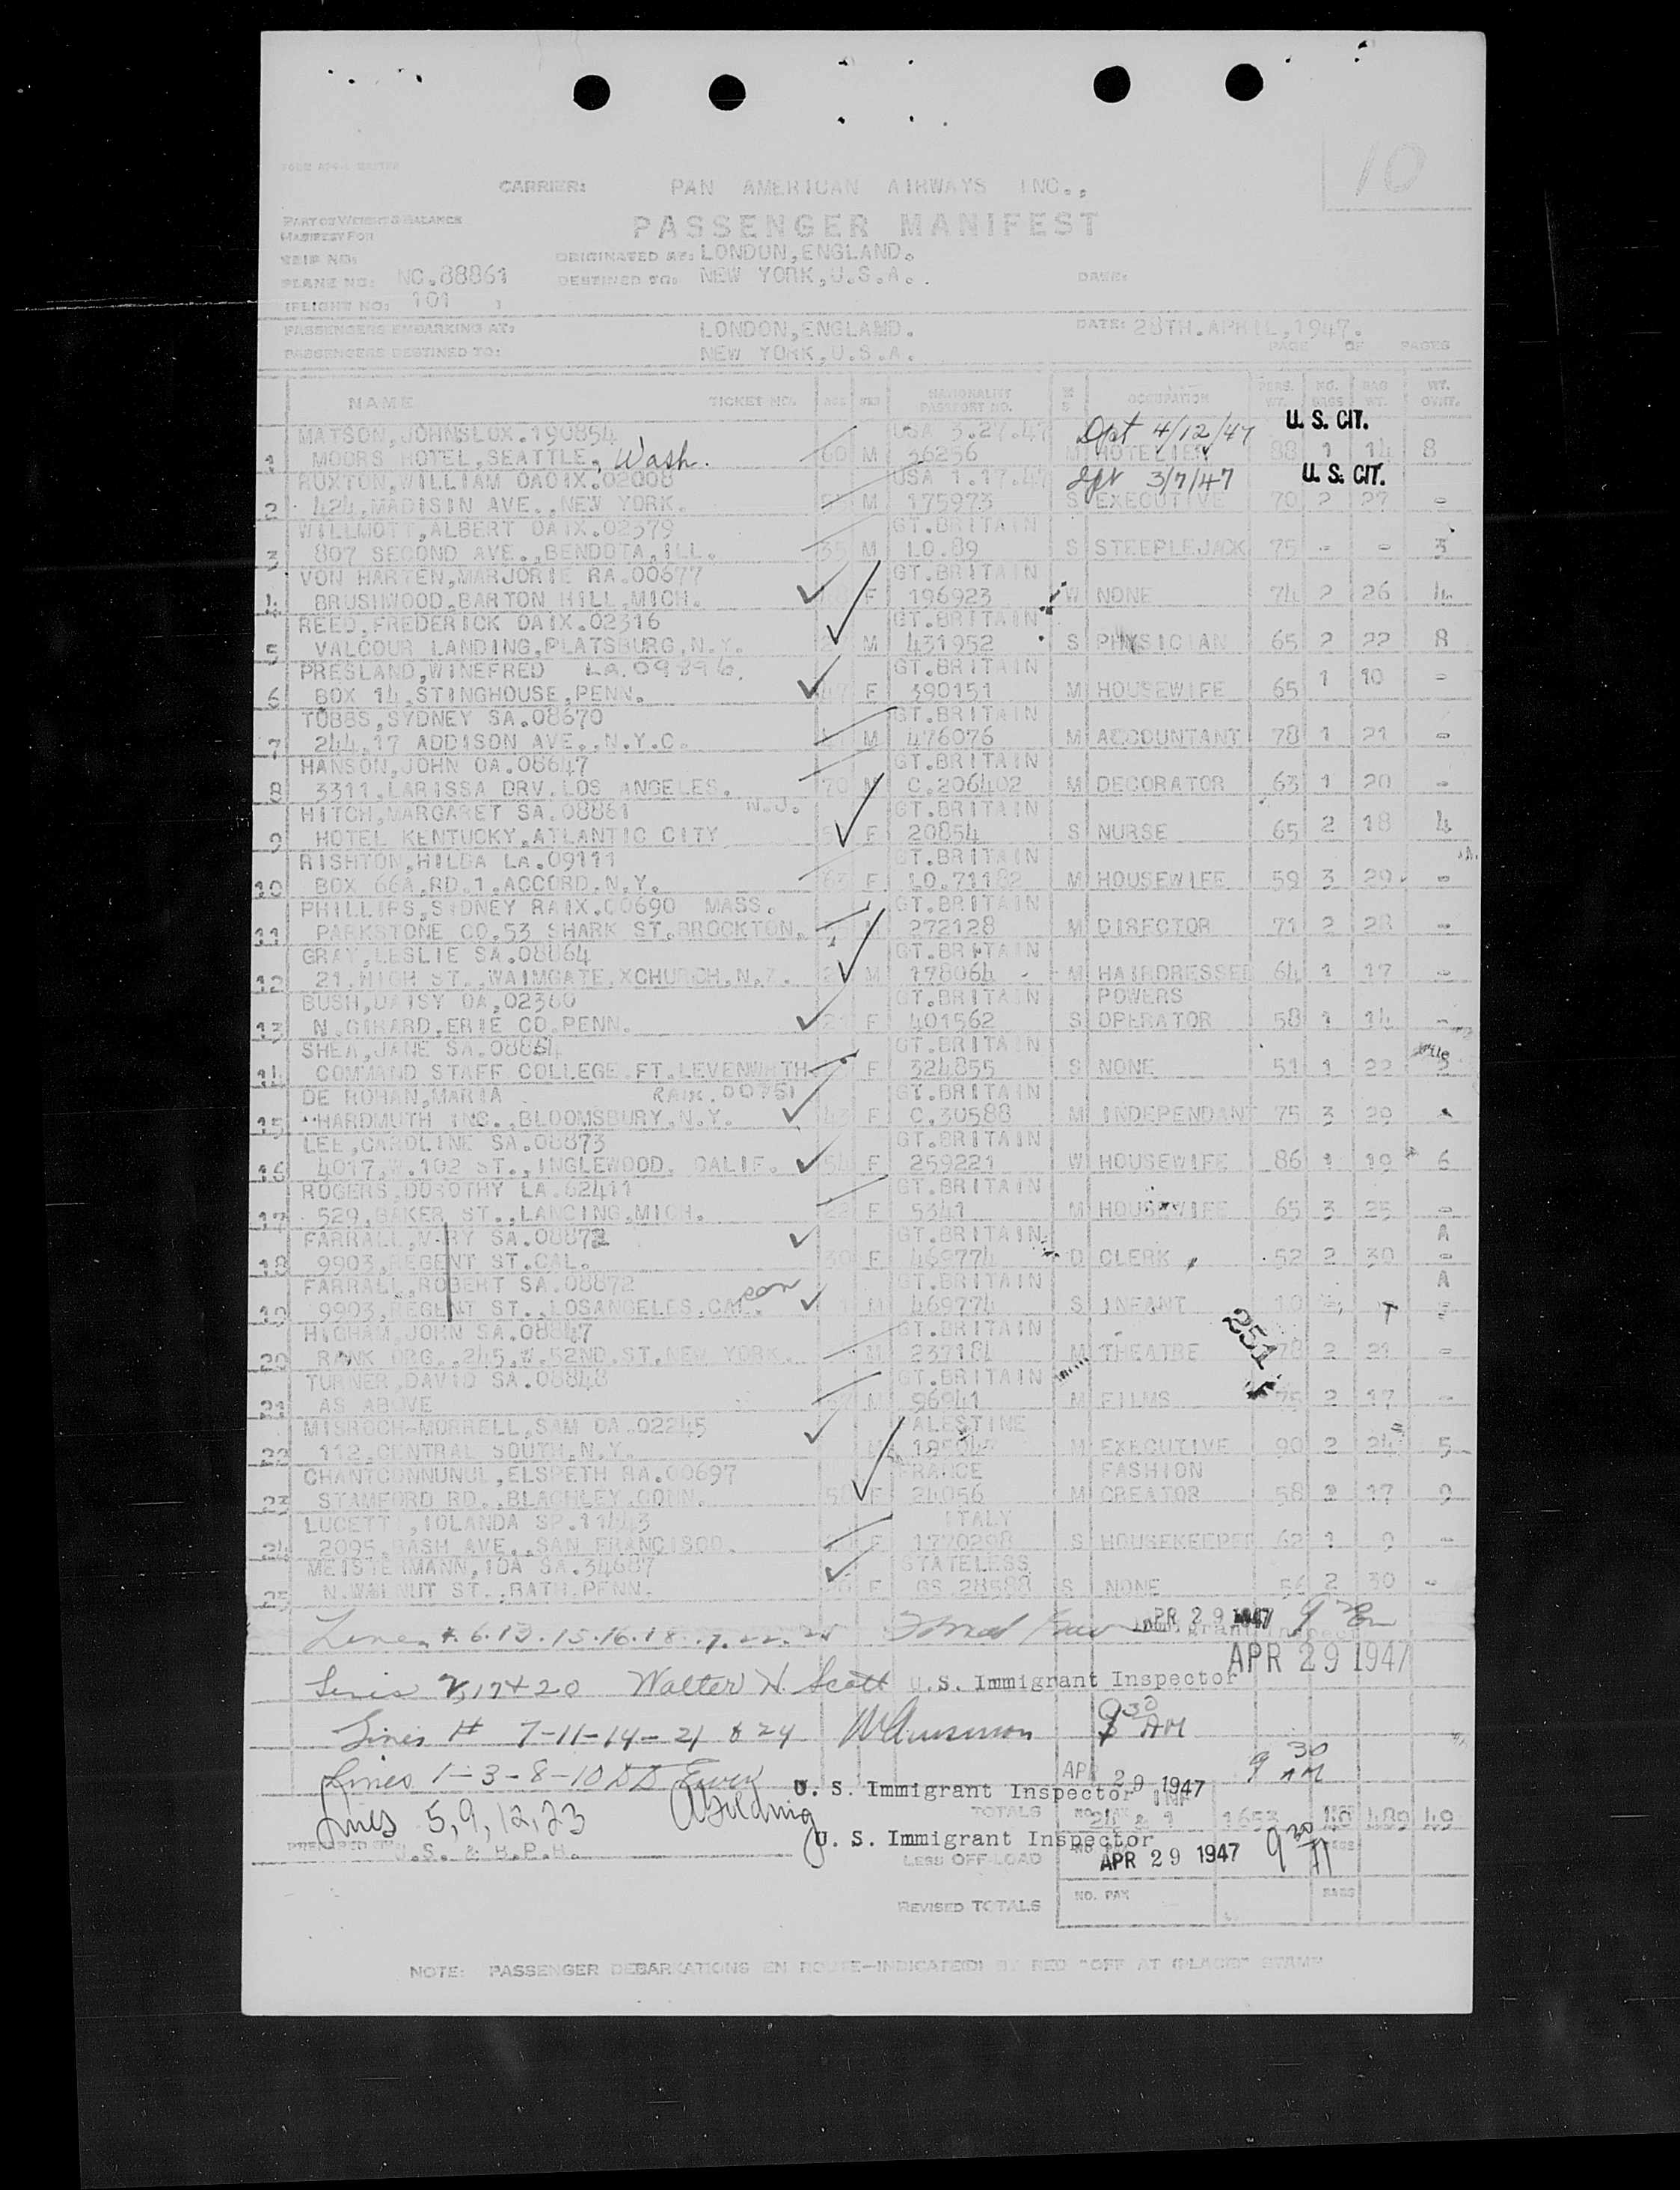 10
CARRIER: PAN AMERICAN AIRWAYS INC.,
PART OF WEIGHT & BALANCE
MANIFEST FOR
PASSENGER MANIFEST
SHIP NO:
ORIGINATED AT: LONDON,ENGLAND.
PLANE NO: NC.88861
DESTINED TO: NEW YORK,U.S.A..
DATE:
(FLIGHT NO: 101 )
PASSENGERS EMBARKING AT: LONDON,ENGLAND.
DATE: 28TH.APRIL,1947.
PASSENGERS DESTINED TO: NEW YORK,U.S.A.
PAGE OF PAGES
NAME TICKET NO. AGE SEX NATIONALITY PASSPORT NO. M S OCCUPATION PERS. WT. NO. BAGS BAG WT. WT. OVHT.
MATSON,JOHNSLOX.190854 USA 3.27.47 Dpt 4/12/47 U. S. CIT.
1 MOORS HOTEL,SEATTLE, Wash. 60 M 56256 M HOTELIER 88 1 14 8
RUXTON,WILLIAM OAOIX.02008 USA 1.17.47 dpt 3/7/47 U. S. CIT.
2 424,MADISIN AVE.,NEW YORK. M 175973 S EXECUTIVE 70 2 27 -
WILLMOTT,ALBERT OAIX.02379 GT.BRITAIN
3 807 SECOND AVE.,BENDOTA,ILL. 35 M LO.89 S STEEPLEJACK 75 - - 3
VON HARTEN,MARJORIE RA.00677 GT.BRITAIN
4 BRUSHWOOD,BARTON HILL,MICH. F 196923 W NONE 74 2 26 4
REED,FREDERICK OAIX.02316 GT.BRITAIN
5 VALCOUR LANDING,PLATSBURG,N.Y. M 431952 S PHYSICIAN 65 2 22 8
PRESLAND,WINEFRED LA.09896. GT.BRITAIN
6 BOX 14,STINGHOUSE,PENN. 47 F 390151 M HOUSEWIFE 65 1 10 -
TOBBS,SYDNEY SA.08670 GT.BRITAIN
7 244.17 ADDISON AVE.,N.Y.C. M 476076 M ACCOUNTANT 78 1 21 -
HANSON,JOHN OA.08647 GT.BRITAIN
8 3311,LARISSA DRV.LOS ANGELES. 70 M C.206402 M DECORATOR 63 1 20 -
HITCH,MARGARET SA.08861 N.J. GT.BRITAIN
9 HOTEL KENTUCKY,ATLANTIC CITY F 20854 S NURSE 65 2 18 4
RISHTON,HILDA LA.09111 GT.BRITAIN
10 BOX 66A,RD.1,ACCORD.N.Y. 63 F LO.71182 M HOUSEWIFE 59 3 29 -
PHILLIPS,SYDNEY RAIX.00690 MASS. GT.BRITAIN
11 PARKSTONE CO.53 SHARK ST.BROCKTON. M 272128 M DIRECTOR 71 2 28 -
GRAY,LESLIE SA.08864 GT.BRITAIN
12 21,HIGH ST.,WAIMGATE,XCHURCH,N.Z. M 178064 M HAIRDRESSER 64 1 17 -
BUSH,DAISY OA,02360 GT.BRITAIN POWERS
13 N.GIRARD,ERIE CO.PENN. 21 F 401562 S OPERATOR 58 1 14 -
SHEA,JANE SA.08854 GT.BRITAIN
14 COMMAND STAFF COLLEGE.FT.LEVENWRTH. F 324855 S NONE 51 1 22
DE ROHAN,MARIA RAIX.00751 GT.BRITAIN
15 HARDMUTH INC.,BLOOMSBURY,N.Y. 43 F C.30588 M INDEPENDANT 75 3 29
LEE,CAROLINE SA.08873 GT.BRITAIN
16 4017,W.102 ST.,INGLEWOOD, CALIF. 54 F 259221 W HOUSEWIFE 86 1 19 6
ROGERS,DOROTHY LA.62411 GT.BRITAIN
17 529,BAKER ST.,LANCING,MICH. 22 F 5341 M HOUSEWIFE 65 3 25 -
FARRALL,MARY SA.08872 GT.BRITAIN A
18 9903,REGENT ST.CAL. 30 F 469774 D CLERK 52 2 30 -
FARRALL,ROBERT SA.08872 son GT.BRITAIN A
19 9903,REGENT ST.,LOSANGELES,CAL. M 469774 S INFANT 10 -
HIGHAM,JOHN SA.08847 GT.BRITAIN 251
20 RANK ORG.,245,W.52ND.ST.NEW YORK. M 237184 M THEATRE 78 2 21 -
TURNER,DAVID SA.08848 GT.BRITAIN
21 AS ABOVE M 96941 M FILMS 75 2 17 -
MISROCH-MORRELL,SAM OA.02245 PALESTINE
22 112,CENTRAL SOUTH,N.Y. M EXECUTIVE 90 2 24 5
CHANTCONNUNUL,ELSPETH RA.00697 FRANCE FASHION
23 STAMFORD RD.,BLACHLEY.CONN. 50 F 24056 M CREATOR 58 2 17 9
LUCETTI,IOLANDA SP.11443 ITALY
24 2095,BASH AVE.,SAN FRANCISCO. F 1770298 S HOUSEKEEPER 62 1 9 -
MEISTERMANN,IDA SA.34687 STATELESS
25 N.WALNUT ST.,BATH.PENN. F GS.28688 S NONE 56 2 30 -
Lines 4.6.13.15.16.18 22.25 APR 29 1947
APR 29 1947
Lines 2,17+20 Walter H. Scott U.S. Immigrant Inspector
Lines # 7-11-14-21 & 24 9 30 AM
Lines 1-3-8-10 APR 29 1947 9 30 AM
U. S. Immigrant Inspector
Lines 5,9,12,23
TOTALS 24 & 1 INF 1653 40 489 49
U. S. Immigrant Inspector
PREPARED BY J.S. & H.P.H.
APR 29 1947 9 30
LESS OFF-LOAD
REVISED TOTALS NO. PAX BAGS
NOTE: PASSENGER DEBARKATIONS EN ROUTE-INDICATED BY RED "OFF AT (PLACE)" STAMP